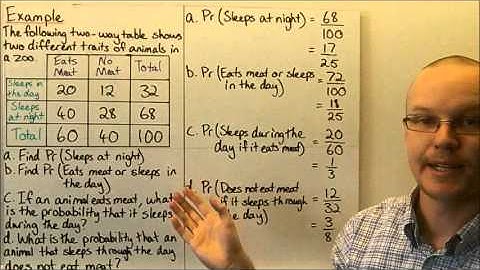 Example
The following two-way table shows
two different traits of animals in
a zoo.
Eats Meat No Meat Total
Sleeps in the day 20 12 32
Sleeps at night 40 28 68
Total 60 40 100
a. Find Pr(Sleeps at night)
b. Find Pr(Eats meat or sleeps in
the day)
C. If an animal eats meat, what
is the probability that it sleeps
during the day?
d. What is the probability that an
animal that sleeps through the day
does not eat meat?
a. Pr(Sleeps at night) = 68/100
= 17/25
b. Pr(Eats meat or sleeps = 72/100
in the day)
= 18/25
C. Pr(Sleeps during the = 20/60
day if it eats meat)
= 1/3
Pr(Does not eat meat = 12/32
if it sleeps through
the day) = 3/8